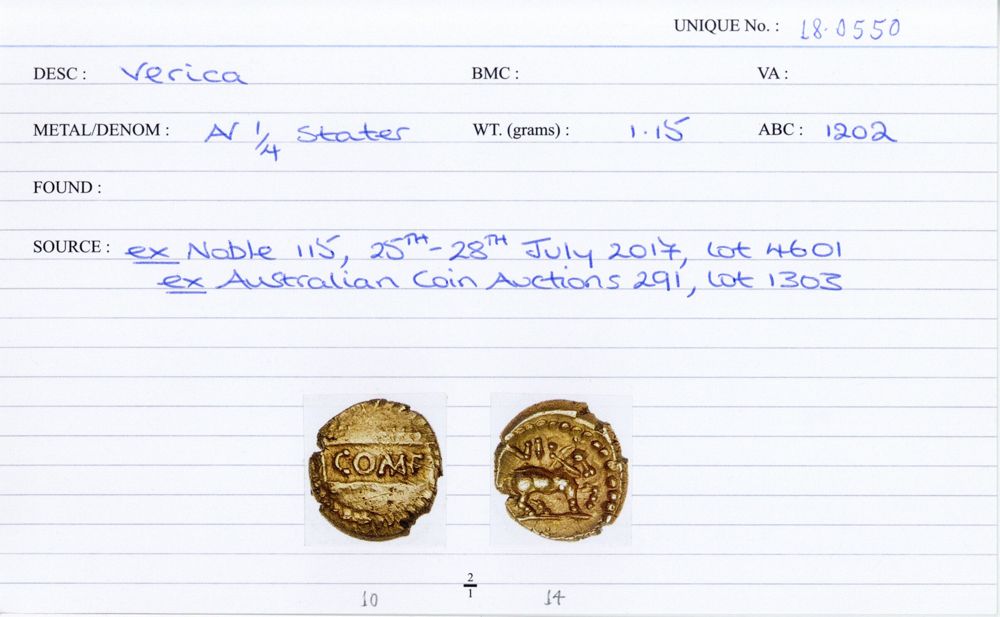 UNIQUE No. : 18.0550
DESC : Verica BMC : VA :
METAL/DENOM : AV 1/4 Stater WT. (grams) : 1.15 ABC : 1202
FOUND :
SOURCE : ex Noble 115, 25TH-28TH July 2017, lot 4601
ex Australian Coin Auctions 291, lot 1303
COMF
VI
2/1
10 14